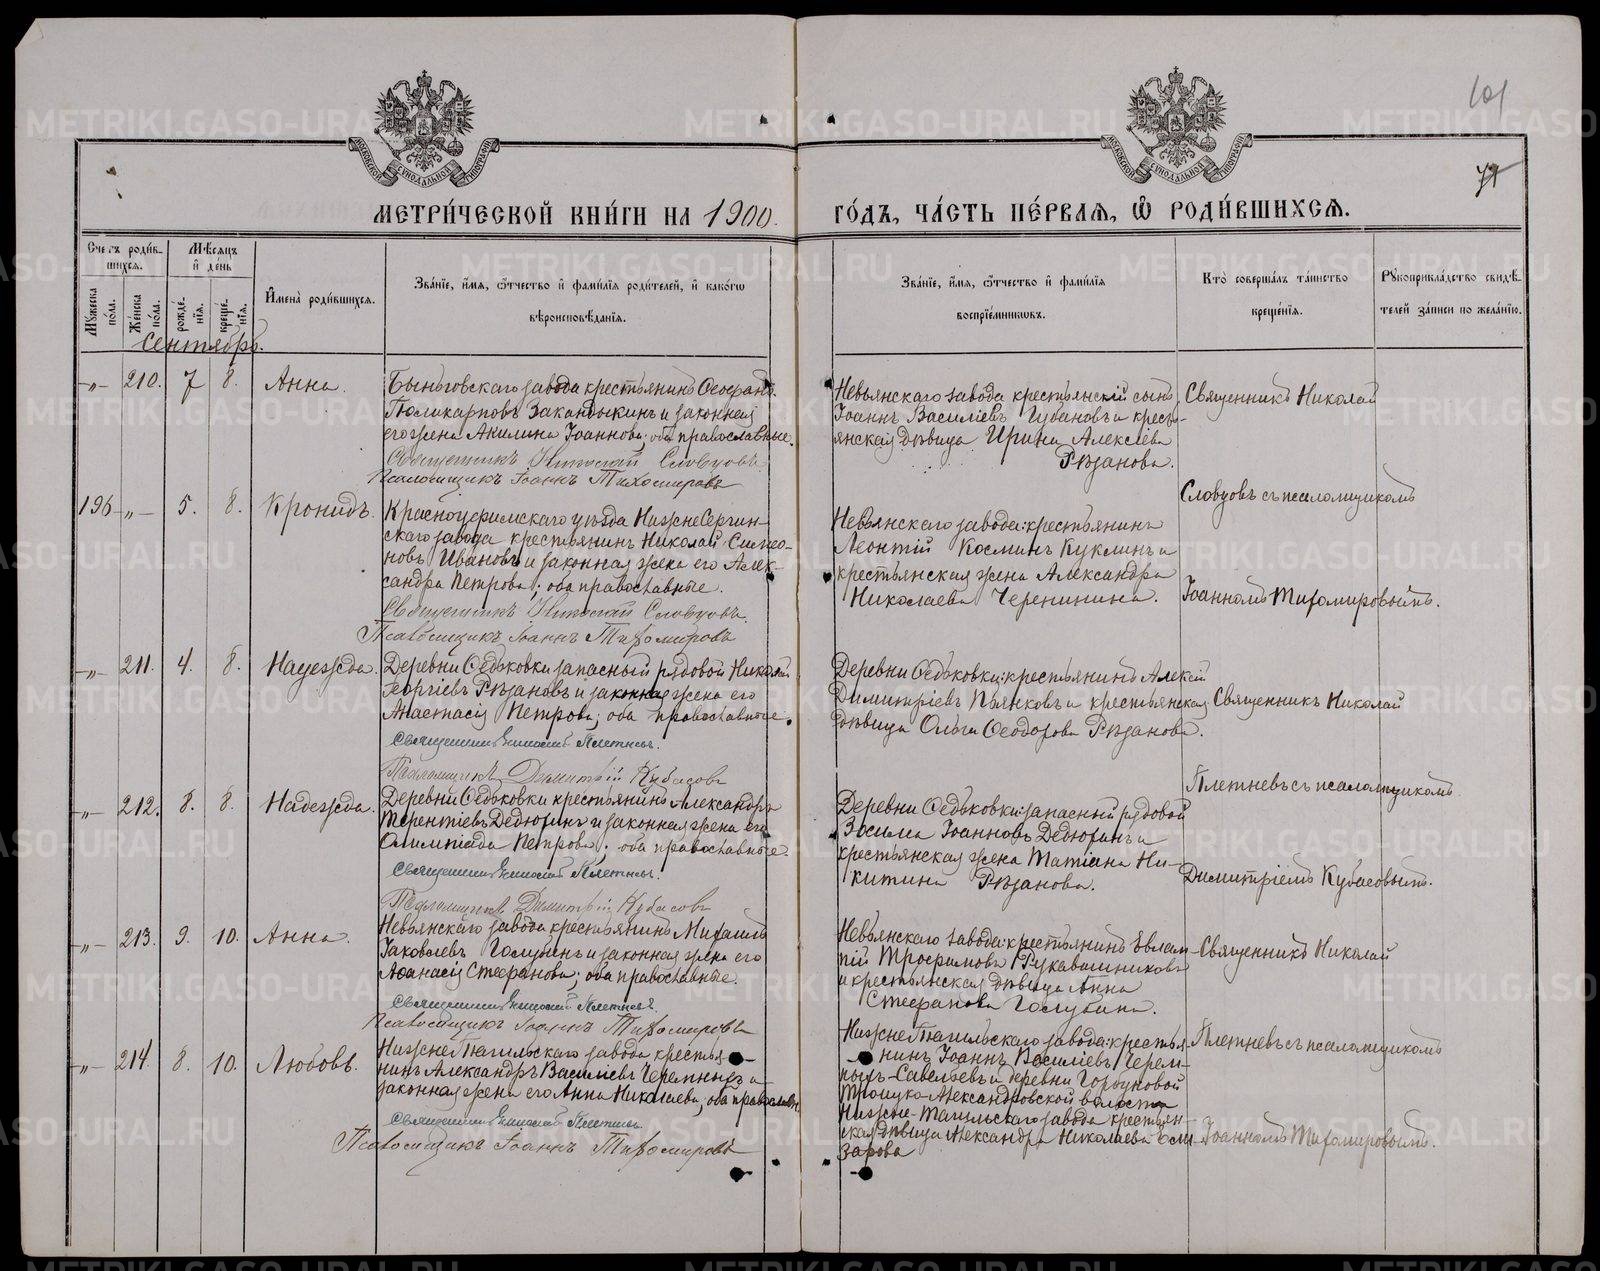 101
71
МЕТРИ́ЧЕСКОЙ КНИ́ГИ НА 1900.
ГО́ДЪ, ЧА́СТЬ ПЕ́РВАѦ, Ѡ҆ РОДИ́ВШИХСѦ.
Сче́тъ роди́в-
шихсѧ.
Мѣ́сѧцъ
и҆ де́нь
Мꙋ́жеска
по́ла.
Же́нска
по́ла.
рожде́-
нїѧ.
креще́-
нїѧ.
И҆мена̀ роди́вшихсѧ.
Зва́нїе, и҆́мѧ, ѻ҆́тчество и҆ фами́лїѧ роди́телей, и҆ како́гѡ
вѣроисповѣ́данїѧ.
Зва́нїе, и҆́мѧ, ѻ҆́тчество и҆ фами́лїѧ
воспрїе́мникѡвъ.
Кто̀ соверша́лъ та́инство
креще́нїѧ.
Рꙋкоприкла́дство свидѣ́-
телей за́писи по жела́нїю.
Сентябрь.
-„- 210. 7 8. Анна.
Быньговскаго завода крестьянинъ Ѳеофанъ
Поликарповъ и законная
его жена Акилина Іоаннова; оба православные.
Священникъ Николай Словцовъ
Псаломщикъ Іоаннъ Тихомировъ
Невьянскаго завода крестьянскій сынъ
Іоаннъ Василіевъ Губановъ и кресть-
янская дѣвица Ирина Алексіева
Рѣзанова.
Священникъ Николай
Словцовъ съ псаломщикомъ
196 -„- 5. 8. Кронидъ.
Красноуфимскаго уѣзда НижнеСергин-
скаго завода крестьянинъ Николай Симео-
новъ Ивановъ и законная жена его Алек-
сандра Петрова; оба православные.
Священникъ Николай Словцовъ.
Псаломщикъ Іоаннъ Тихомировъ
Невьянскаго завода: крестьянинъ
Леонтій Косминъ Куклинъ и
крестьянская жена Александра
Николаева Черепинина.
Іоанномъ Тихомировымъ.
-„- 211. 4. 8. Надежда.
Деревни Ѳедьковки запасный рядовой Николай
Георгіевъ Рѣзановъ и законная жена его
Анастасія Петрова; оба православные.
Священникъ Николай Плетневъ.
Псаломщикъ Димитрій Кубасовъ
Деревни Ѳедьковки: крестьянинъ Алексій
Димитріевъ Пьянковъ и крестьянская
дѣвица Ольга Ѳеодорова Рѣзанова.
Священникъ Николай
Плетневъ съ псаломщикомъ
-„- 212. 8. 8. Надежда.
Деревни Ѳедьковки крестьянинъ Александръ
Терентіевъ Дедюхинъ и законная жена его
Олимпіада Петрова; оба православные.
Священникъ Николай Плетневъ.
Псаломщикъ Димитрій Кубасовъ
Деревни Ѳедьковки: запасный рядовой
Зосима Іоанновъ Дедюхинъ и
крестьянская жена Татіана Ни-
китина Рѣзанова.
Димитріемъ Кубасовымъ.
-„- 213. 9. 10. Анна.
Невьянскаго завода крестьянинъ Михаилъ
Іаковлевъ Голубинъ и законная жена его
Аѳанасія Стефанова; оба православные.
Священникъ Николай Плетневъ.
Псаломщикъ Іоаннъ Тихомировъ
Невьянскаго завода: крестьянинъ Евлам-
пій Трофимовъ Рукавишниковъ
и крестьянская дѣвица Анна
Стефанова Голубина.
Священникъ Николай
-„- 214. 8. 10. Любовь.
НижнеТагильскаго завода крестья-
нинъ Александръ Василіевъ Черемныхъ и
законная жена его Анна Николаева; оба православн.
Священникъ Николай Плетневъ.
Псаломщикъ Іоаннъ Тихомировъ
НижнеТагильскаго завода: крестья-
нинъ Іоаннъ Василіевъ Черем-
ныхъ-Савельевъ и деревни Горбуновой
Троицко-Александровской волости
Нижне-Тагильскаго завода крестьян-
ская дѣвица Александра Николаева
Плетневъ съ псаломщикомъ
Іоанномъ Тихомировымъ.
METRIKI.GASO-URAL.RU